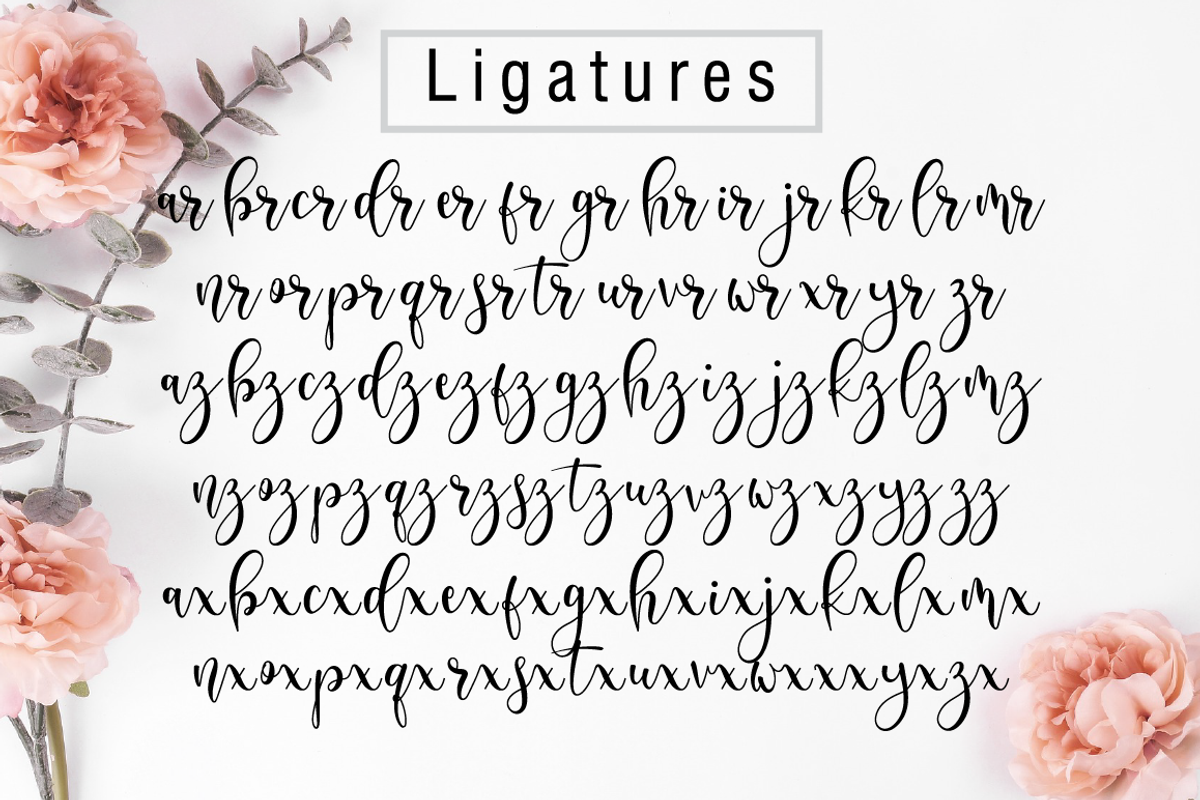 Ligatures
ar br cr dr er fr gr hr ir jr kr lr mr
nr or pr qr sr tr ur vr wr xr yr zr
az bz cz dz ez fz gz hz iz jz kz lz mz
nz oz pz qz rz sz tz uz vz wz xz yz zz
ax bx cx dx ex fx gx hx ix jx kx lx mx
nx ox px qx rx sx tx ux vx wx xx yx zx